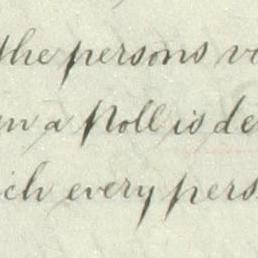 the persons v
n a Poll is de
ich every pers